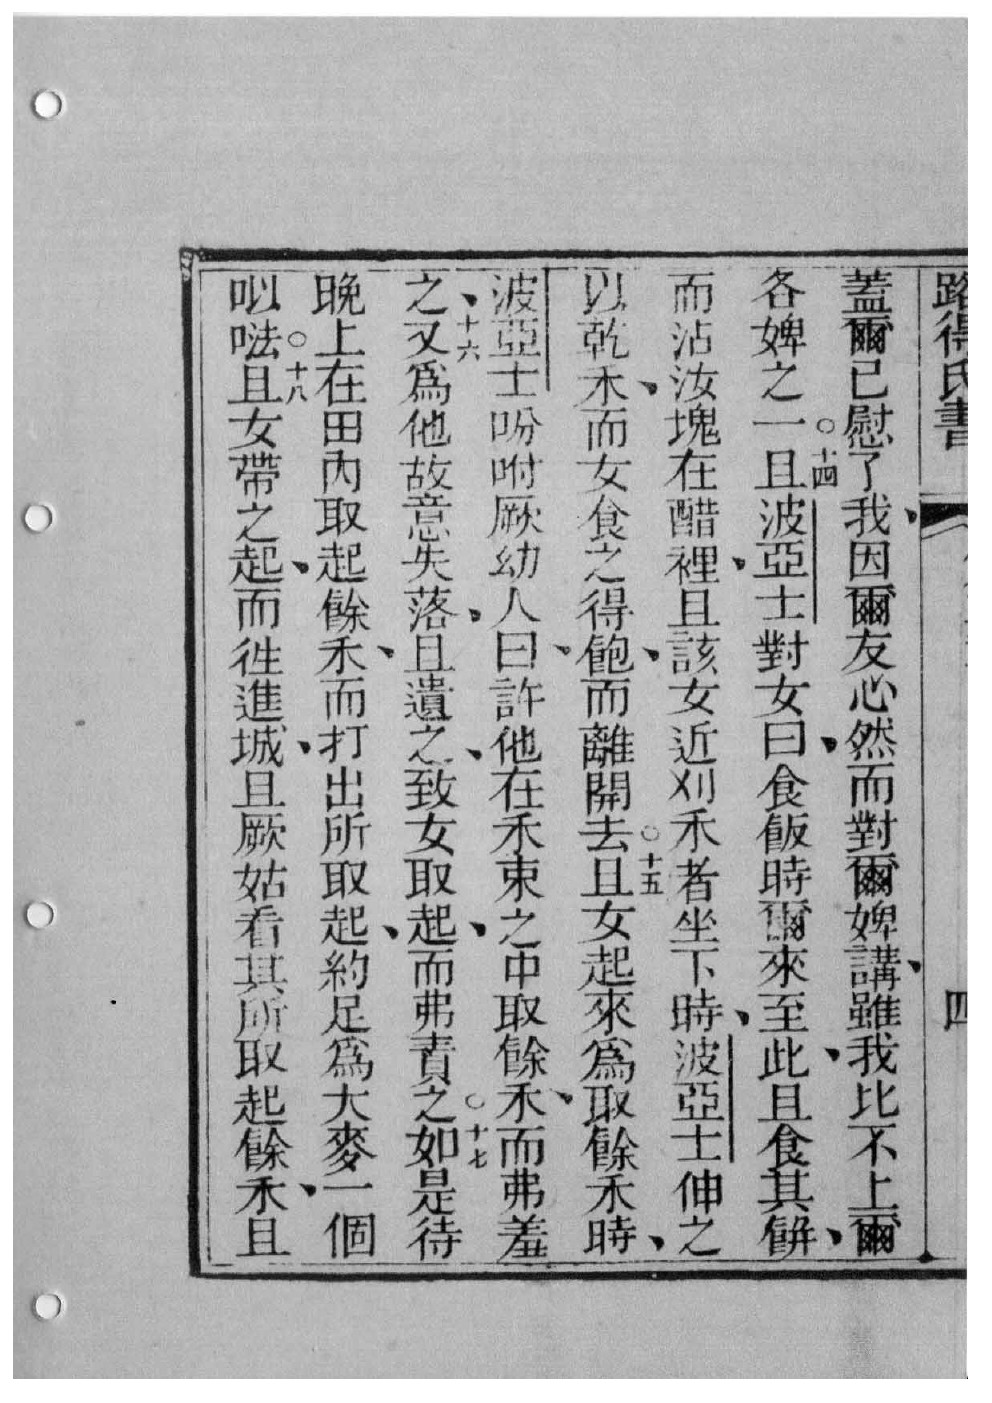 路得氏書 四
蓋爾已慰了我、因爾友心然而對爾婢講、雖我比不上爾
各婢之一。十四且波亞士對女曰、食飯時爾來至此、且食其餅、
而沾汝塊在醋裡、且該女近刈禾者坐下時、波亞士伸之
以乾禾、而女食之得飽、而離開去。十五且女起來爲取餘禾時、
波亞士吩咐厥幼人曰、許他在禾束之中取餘禾、而弗羞
之、十六又爲他故意失落、且遺之、致女取起、而弗責之。十七如是待
晚上在田內取起餘禾、而打出所取起、約足爲大麥一個
㕥㖕。十八且女帶之起、而徃進城、且厥姑看其所取起餘禾、且